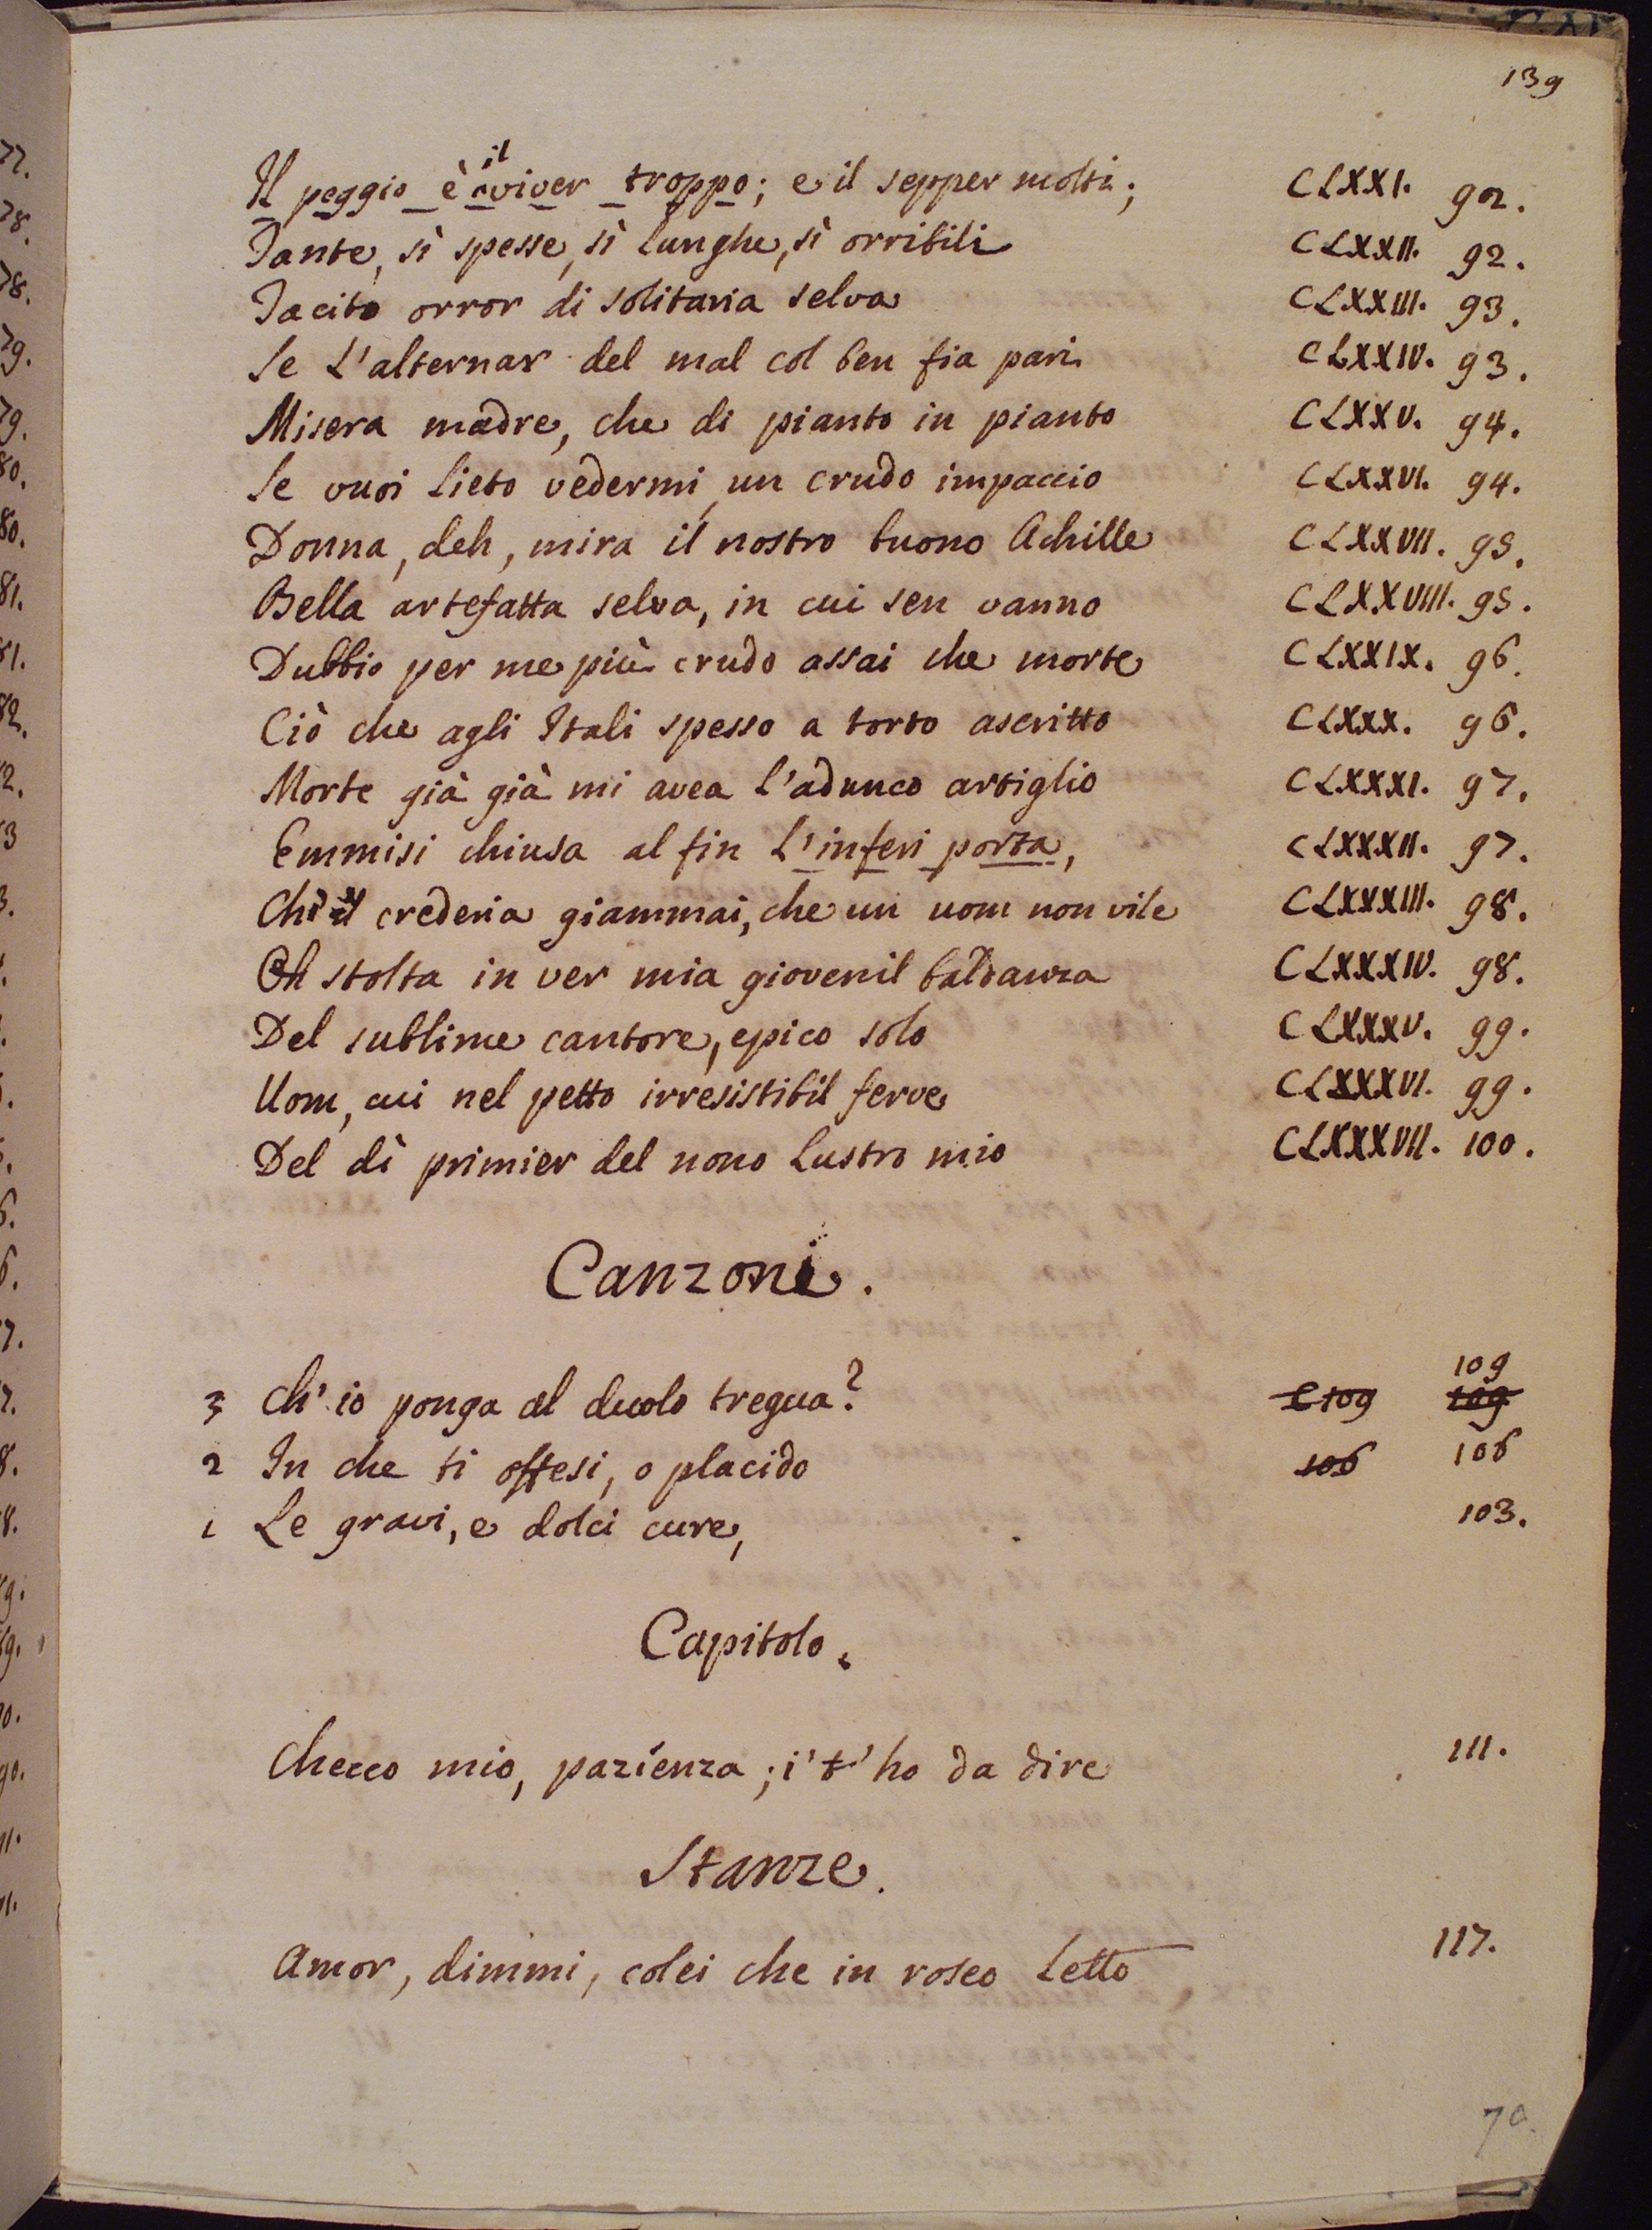 139
Il peggio è il viver troppo; e il sepper molti; CLXXI. 92.
Tante, sì spesse, sì lunghe, sì orribili CLXXII. 92.
Tacito orror di solitaria selva CLXXIII. 93.
Se l'alternar del mal col ben fia pari CLXXIV. 93.
Misera madre, che di pianto in pianto CLXXV. 94.
Se vuoi lieto vedermi, un crudo impaccio CLXXVI. 94.
Donna, deh, mira il nostro buono Achille CLXXVII. 95.
Bella artefatta selva, in cui sen vanno CLXXVIII. 95.
Dubbio per me più crudo assai che morte CLXXIX. 96.
Ciò che agli Itali spesso a torto ascritto CLXXX. 96.
Morte già già mi avea l'adunco artiglio CLXXXI. 97.
Emmisi chiusa al fin l'inferi porta, CLXXXII. 97.
Chi 'l crederia giammai, che un uom non vile CLXXXIII. 98.
Oh stolta in ver mia giovenil baldanza CLXXXIV. 98.
Del sublime cantore, epico solo CLXXXV. 99.
Uom, cui nel petto irresistibil ferve CLXXXVI. 99.
Del dì primier del nono lustro mio CLXXXVII. 100.
Canzoni.
109
3 Ch' io ponga al duolo tregua? C109 109
2 In che ti offesi, o placido 106 106
1 Le gravi, e dolci cure, 103.
Capitolo.
Checco mio, pazienza; i' t' ho da dire 111.
Stanze.
Amor, dimmi, colei che in roseo letto 117.
70
77.
78.
78.
79.
79.
80.
80.
81.
81.
82.